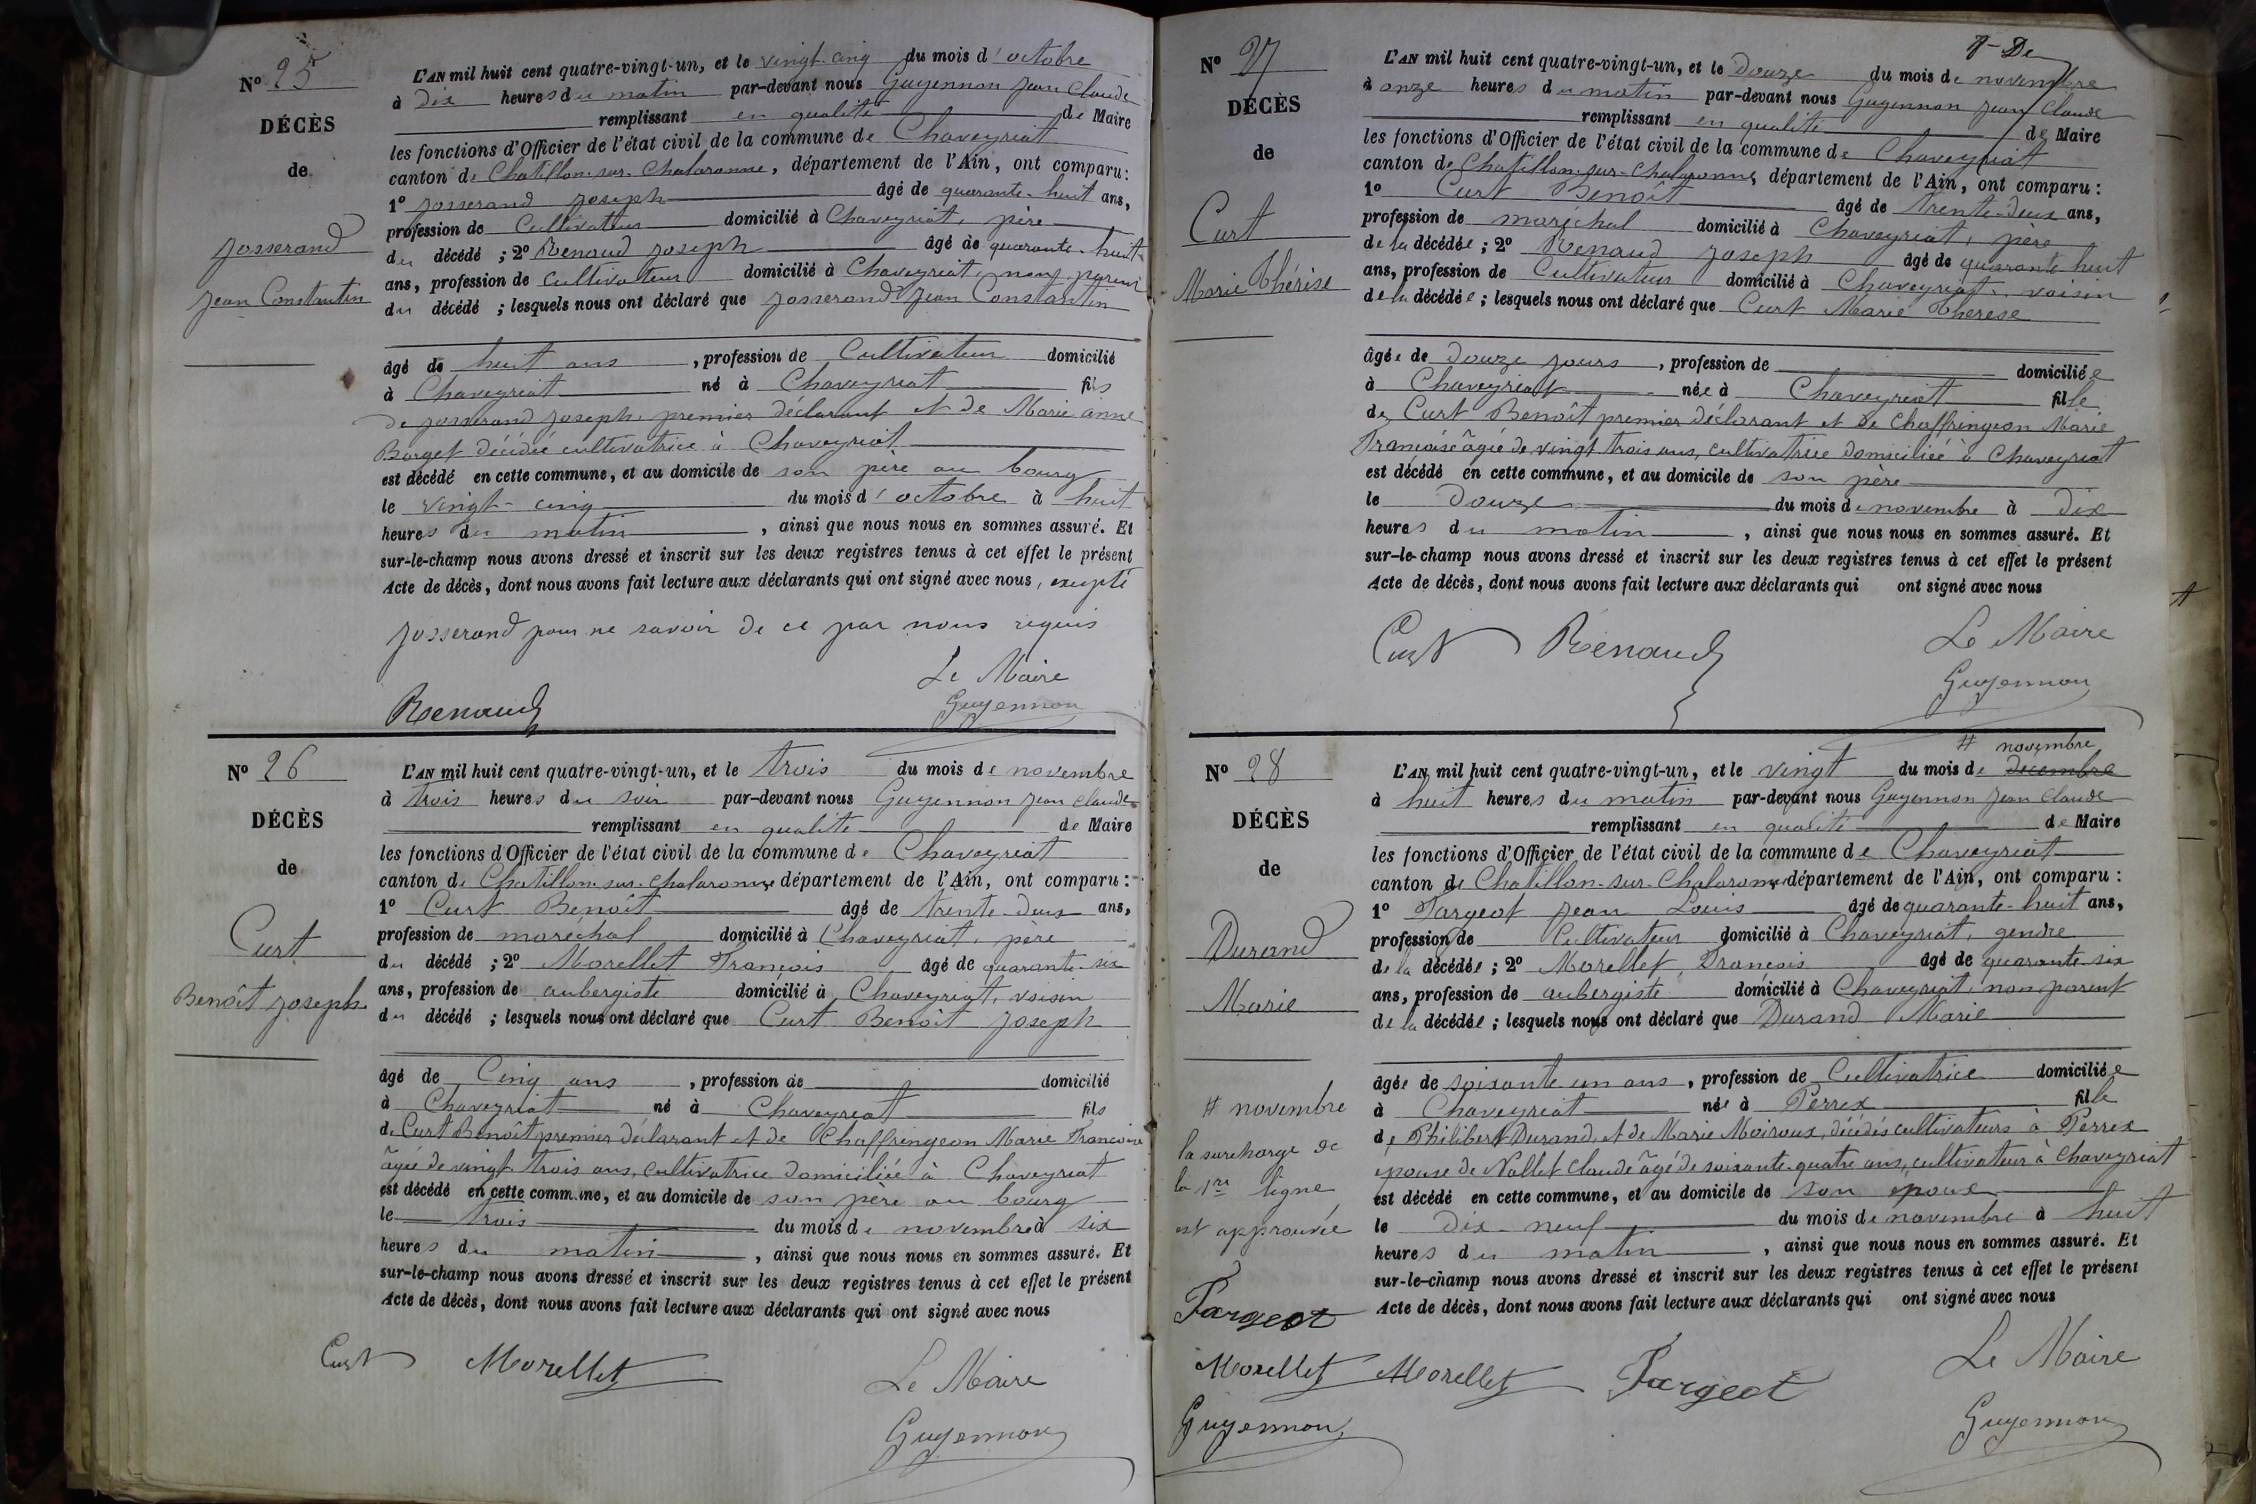 N° 25
DÉCÈS
de
Josserand
Jean Constantin
L'AN mil huit cent quatre-vingt-un, et le vingt-cinq du mois d'octobre
à dix heures du matin par-devant nous Guyennon Jean Claude
remplissant en qualité de Maire
les fonctions d'Officier de l'état civil de la commune de Chaveyriat
canton de Chatillon-sur-Chalaronne, département de l'Ain, ont comparu :
1° Josserand Joseph âgé de quarante-huit ans,
profession de Cultivateur domicilié à Chaveyriat, père
du décédé ; 2° Renaud Joseph âgé de quarante-huit
ans, profession de cultivateur domicilié à Chaveyriat, non parent
du décédé ; lesquels nous ont déclaré que Josserand Jean Constantin
âgé de huit ans, profession de Cultivateur domicilié
à Chaveyriat né à Chaveyriat fils
de Josserand Joseph, premier déclarant et de Marie anne
Borget décédée cultivatrice à Chaveyriat
est décédé en cette commune, et au domicile de son père au bourg
le vingt-cinq du mois d'octobre à huit
heures du matin, ainsi que nous nous en sommes assuré. Et
sur-le-champ nous avons dressé et inscrit sur les deux registres tenus à cet effet le présent
Acte de décès, dont nous avons fait lecture aux déclarants qui ont signé avec nous, excepté
Josserand pour ne savoir de ce par nous requis
Le Maire
Renaud Guyennon
N° 26
DÉCÈS
de
Curt
Benoît Joseph
L'AN mil huit cent quatre-vingt-un, et le trois du mois de novembre
à trois heures du soir par-devant nous Guyennon Jean Claude
remplissant en qualité de Maire
les fonctions d'Officier de l'état civil de la commune de Chaveyriat
canton de Chatillon-sur-Chalaronne département de l'Ain, ont comparu :
1° Curt Benoît âgé de trente-deux ans,
profession de maréchal domicilié à Chaveyriat, père
du décédé ; 2° Morellet François âgé de quarante-six
ans, profession de aubergiste domicilié à Chaveyriat, voisin
du décédé ; lesquels nous ont déclaré que Curt Benoît Joseph
âgé de Cinq ans, profession de domicilié
à Chaveyriat né à Chaveyriat fils
de Curt Benoît premier déclarant et de Chaffringeon Marie Françoise
âgée de vingt-trois ans, cultivatrice domiciliée à Chaveyriat
est décédé en cette commune, et au domicile de son père au bourg
le trois du mois de novembre à six
heures du matin, ainsi que nous nous en sommes assuré. Et
sur-le-champ nous avons dressé et inscrit sur les deux registres tenus à cet effet le présent
Acte de décès, dont nous avons fait lecture aux déclarants qui ont signé avec nous
Curt Morellet
Le Maire
Guyennon
N° 27
DÉCÈS
de
Curt
Marie Thérèse
L'AN mil huit cent quatre-vingt-un, et le Douze du mois de novembre
à onze heures du matin par-devant nous Guyennon Jean Claude
remplissant en qualité de Maire
les fonctions d'Officier de l'état civil de la commune de Chaveyriat
canton de Chatillon-sur-Chalaronne, département de l'Ain, ont comparu :
1° Curt Benoît âgé de trente-deux ans,
profession de maréchal domicilié à Chaveyriat, père
de la décédée ; 2° Renaud Joseph âgé de quarante huit
ans, profession de Cultivateur domicilié à Chaveyriat, voisin
de la décédée ; lesquels nous ont déclaré que Curt Marie Thérèse
âgée de Douze jours, profession de domiciliée
à Chaveyriat née à Chaveyriat fille
de Curt Benoît premier déclarant et de Chaffringeon Marie
Françoise âgée de vingt trois ans, cultivatrice domiciliée à Chaveyriat
est décédé en cette commune, et au domicile de son père
le Douze du mois de novembre à Dix
heures du matin, ainsi que nous nous en sommes assuré. Et
sur-le-champ nous avons dressé et inscrit sur les deux registres tenus à cet effet le présent
Acte de décès, dont nous avons fait lecture aux déclarants qui ont signé avec nous
Curt Renaud
Le Maire
Guyennon
N° 28
DÉCÈS
de
Durand
Marie
# novembre
la surcharge de
la 1re ligne
est approuvée
Fargeot
Morellet
Guyennon
# novembre
L'AN mil huit cent quatre-vingt-un, et le vingt du mois de decembre
à huit heures du matin par-devant nous Guyennon Jean Claude
remplissant en qualité de Maire
les fonctions d'Officier de l'état civil de la commune de Chaveyriat
canton de Chatillon-sur-Chalaronne département de l'Ain, ont comparu :
1° Fargeot Jean Louis âgé de quarante-huit ans,
profession de Cultivateur domicilié à Chaveyriat, gendre
de la décédée ; 2° Morellet, Francois âgé de quarante-six
ans, profession de aubergiste domicilié à Chaveyriat, non parent
de la décédée ; lesquels nous ont déclaré que Durand Marie
âgée de soixante un ans, profession de Cultivatrice domiciliée
à Chaveyriat née à Perrex fille
de Philibert Durand, et de Marie Moiroux, décédés cultivateurs à Perrex
épouse de Nallet Claude âgé de soixante-quatre ans, cultivateur à Chaveyriat
est décédé en cette commune, et au domicile de son époux
le dix-neuf du mois de novembre à huit
heures du matin, ainsi que nous nous en sommes assuré. Et
sur-le-champ nous avons dressé et inscrit sur les deux registres tenus à cet effet le présent
Acte de décès, dont nous avons fait lecture aux déclarants qui ont signé avec nous
Morellet Fargeot
Le Maire
Guyennon